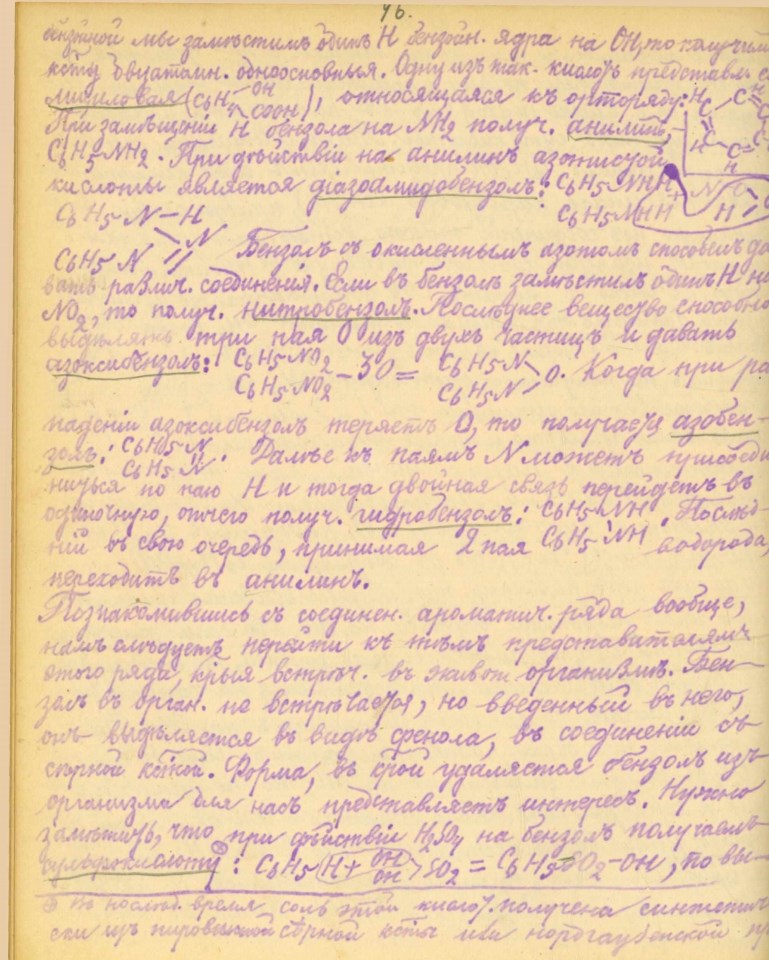 46.
бензойной мы заместимъ одинъ H бензойн. ядра на OH, то получимъ
к-ту двуатомн. одноосновныя. Одну изъ так. кислотъ представл.
лициловая (C6H4 OH COOH), относящаяся къ орторяду: H C C
При замѣщеніи H бензола на NH2 получ. анилинъ
C6H5NH2. При дѣйствіи на анилинъ азотистой
кислоты является діазоамидобензолъ: C6H5NHH
C6H5NHH
C6H5N–H
N
C6H5N Бензолъ съ окисленнымъ азотомъ способенъ да
вать различ. соединенія. Если въ бензолѣ замѣстимъ одинъ H на
NO2, то получ. нитробензолъ. Последнее вещество способно
выдѣлять три пая O изъ двухъ частицъ и давать
азоксибензолъ: C6H5NO2 C6H5NO2 – 3O = C6H5N C6H5N O. Когда при ра
паденіи азоксибензолъ теряетъ O, то получается азобен-
золъ: C6H5N C6H5N. Далѣе къ паямъ N можетъ присоеди
ниться по паю H и тогда двойная связь перейдетъ въ
одиночную, отчего получ. гидробензолъ: C6H5–NH C6H5NH. Послѣд-
ній въ свою очередь, принимая 2 пая водорода,
переходитъ въ анилинъ.
Познакомившись съ соединен. ароматич. ряда вообще,
намъ слѣдуетъ перейти къ тѣмъ представителямъ
этого ряда, к-рыя встрѣч. въ живот. организмѣ. Бен-
золъ въ орган. не встрѣчается, но введенный въ него,
онъ выдѣляется въ видѣ фенола, въ соединеніи съ
сѣрной к-той. Форма, въ к-рой удаляется бензолъ изъ
организма для насъ представляетъ интересъ. Нужно
замѣтить, что при дѣйствіи H2SO4 на бензолъ получаемъ
сульфокислоту: C6H5(H + OH OH)SO2 = C6H5SO2–OH, по вы-
Въ послѣд. время соль этой кислот. получена синтетич
ски изъ пировинной сѣрной к-ты или нордгаузенской